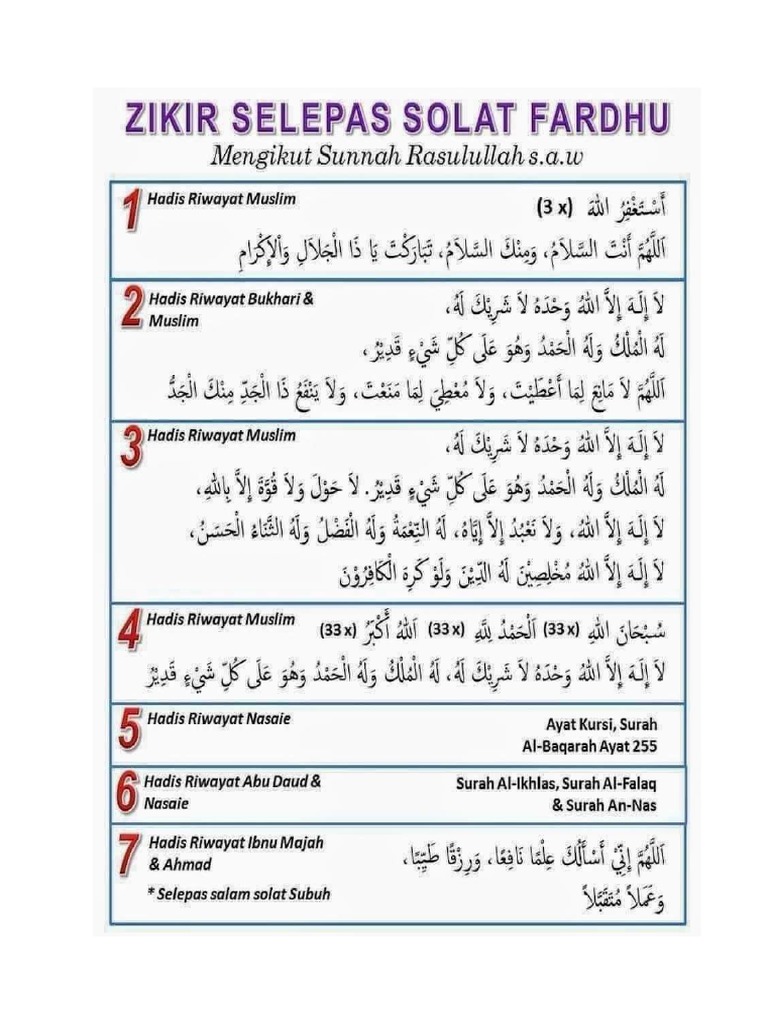 ZIKIR SELEPAS SOLAT FARDHU
Mengikut Sunnah Rasulullah s.a.w
1 Hadis Riwayat Muslim
أَسْتَغْفِرُ اللهَ (3 x)
اَللَّهُمَّ أَنْتَ السَّلاَمُ، وَمِنْكَ السَّلاَمُ، تَبَارَكْتَ يَا ذَا الْجَلاَلِ وَاْلإِكْرَامِ
2 Hadis Riwayat Bukhari &
Muslim
لاَ إِلَـهَ إِلاَّ اللهُ وَحْدَهُ لاَ شَرِيْكَ لَهُ،
لَهُ الْمُلْكُ وَلَهُ الْحَمْدُ وَهُوَ عَلَى كُلِّ شَيْءٍ قَدِيْرُ،
اَللَّهُمَّ لاَ مَانِعَ لِمَا أَعْطَيْتَ، وَلاَ مُعْطِيَ لِمَا مَنَعْتَ، وَلاَ يَنْفَعُ ذَا الْجَدِّ مِنْكَ الْجَدُّ
3 Hadis Riwayat Muslim
لاَ إِلَـهَ إِلاَّ اللهُ وَحْدَهُ لاَ شَرِيْكَ لَهُ،
لَهُ الْمُلْكُ وَلَهُ الْحَمْدُ وَهُوَ عَلَى كُلِّ شَيْءٍ قَدِيْرُ. لاَ حَوْلَ وَلاَ قُوَّةَ إِلاَّ بِاللهِ،
لاَ إِلَـهَ إِلاَّ اللهُ، وَلاَ نَعْبُدُ إِلاَّ إِيَّاهُ، لَهُ النِّعْمَةُ وَلَهُ الْفَضْلُ وَلَهُ الثَّنَاءُ الْحَسَنُ،
لاَ إِلَـهَ إِلاَّ اللهُ مُخْلِصِيْنَ لَهُ الدِّيْنَ وَلَوْ كَرِهَ الْكَافِرُوْنَ
4 Hadis Riwayat Muslim
سُبْحَانَ اللهِ (33 x) اَلْحَمْدُ لِلَّهِ (33 x) اَللهُ أَكْبَرُ (33 x)
لاَ إِلَـهَ إِلاَّ اللهُ وَحْدَهُ لاَ شَرِيْكَ لَهُ، لَهُ الْمُلْكُ وَلَهُ الْحَمْدُ وَهُوَ عَلَى كُلِّ شَيْءٍ قَدِيْرُ
5 Hadis Riwayat Nasaie
Ayat Kursi, Surah
Al-Baqarah Ayat 255
6 Hadis Riwayat Abu Daud &
Nasaie
Surah Al-Ikhlas, Surah Al-Falaq
& Surah An-Nas
7 Hadis Riwayat Ibnu Majah
& Ahmad
* Selepas salam solat Subuh
اَللَّهُمَّ إِنِّيْ أَسْأَلُكَ عِلْمًا نَافِعًا، وَرِزْقًا طَيِّبًا،
وَعَمَلاً مُتَقَبَّلاً